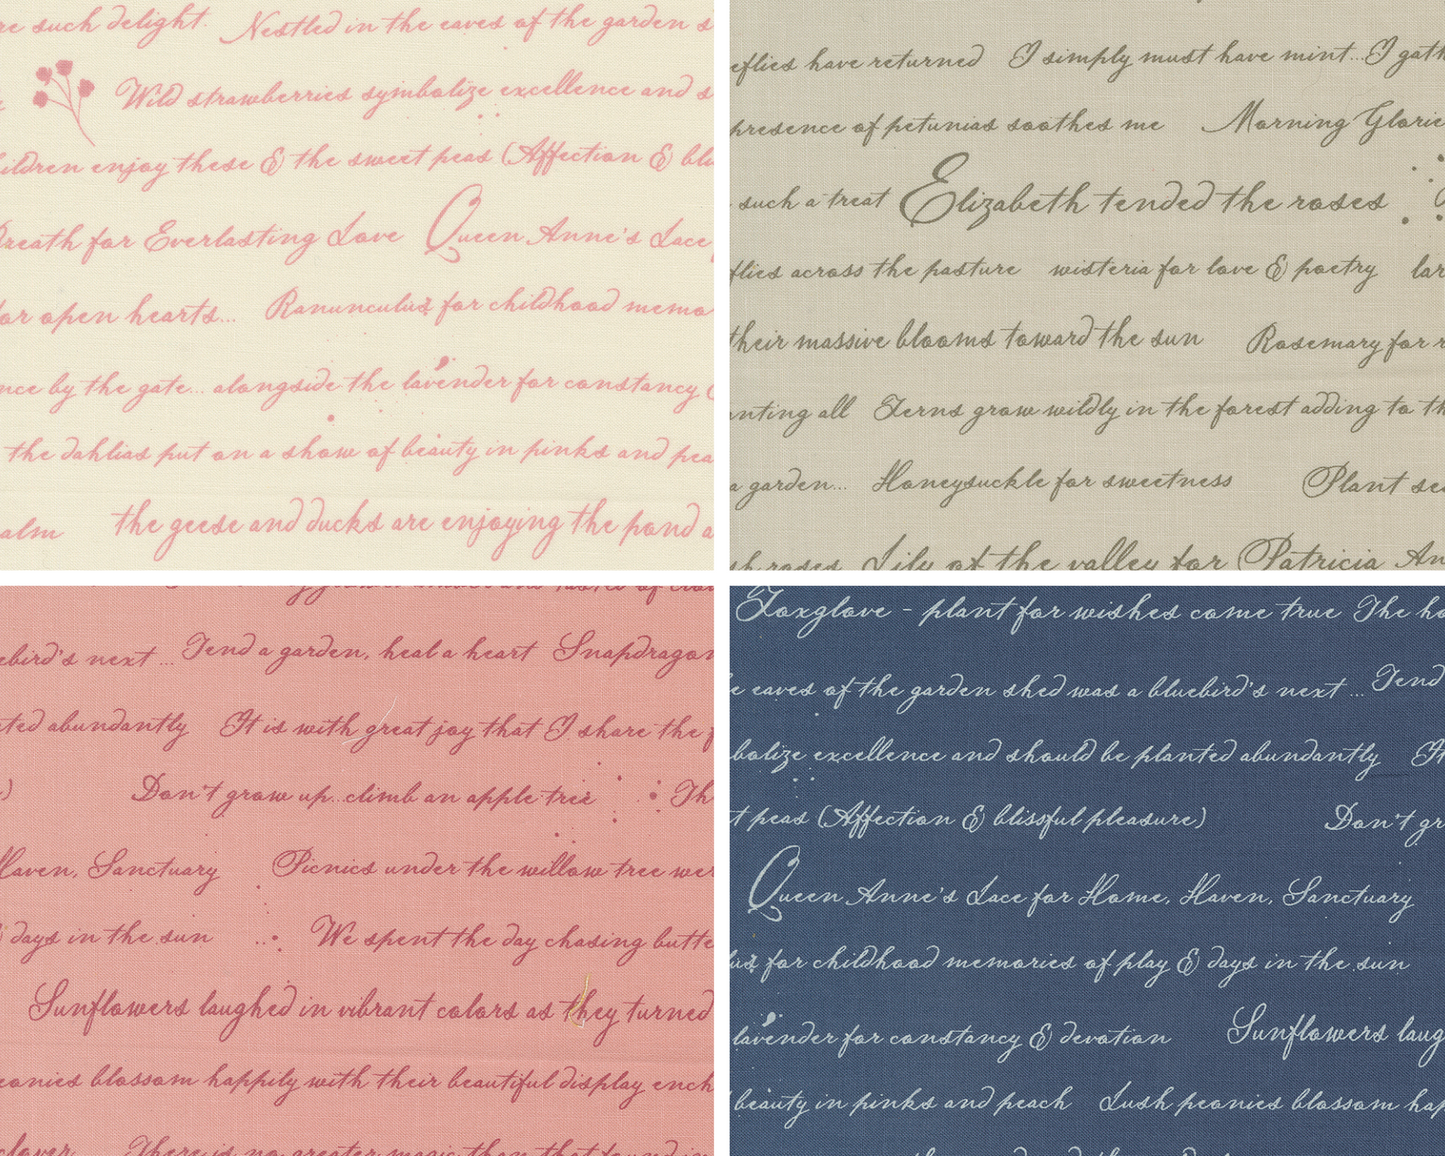 re such delight. Nestled in the eaves of the garden s
Wild strawberries symbolize excellence and s
ildren enjoy these & the sweet peas (Affection & bli
Breath for Everlasting Love Queen Anne's Lace
or open hearts... Ranunculus for childhood memo
nce by the gate... alongside the lavender for constancy &
the dahlias put on a show of beauty in pinks and pea
alm the geese and ducks are enjoying the pond a
eflies have returned I simply must have mint...I gath
presence of petunias soothes me Morning Glorie
such a treat Elizabeth tended the roses
flies across the pasture wisteria for love & poetry lar
their massive blooms toward the sun Rosemary for r
nting all Ferns grow wildly in the forest adding to th
a garden... Honeysuckle for sweetness Plant see
sh roses Lily of the valley for (Patricia An
ebird's next ... Tend a garden, heal a heart Snapdragon
ted abundantly It is with great joy that I share the f
) Don't grow up...climb an apple tree Th
Haven, Sanctuary Picnics under the willow tree wer
days in the sun We spent the day chasing butte
Sunflowers laughed in vibrant colors as they turned
eonies blossom happily with their beautiful display ench
clover There is no greater magic than that found in
Foxglove - plant for wishes come true The ho
e eaves of the garden shed was a bluebird's next ... Tend
bolize excellence and should be planted abundantly It
t peas (Affection & blissful pleasure) Don't gr
Queen Anne's Lace for Home, Haven, Sanctuary
lus for childhood memories of play & days in the sun
lavender for constancy & devotion Sunflowers laug
beauty in pinks and peach Lush peonies blossom hap